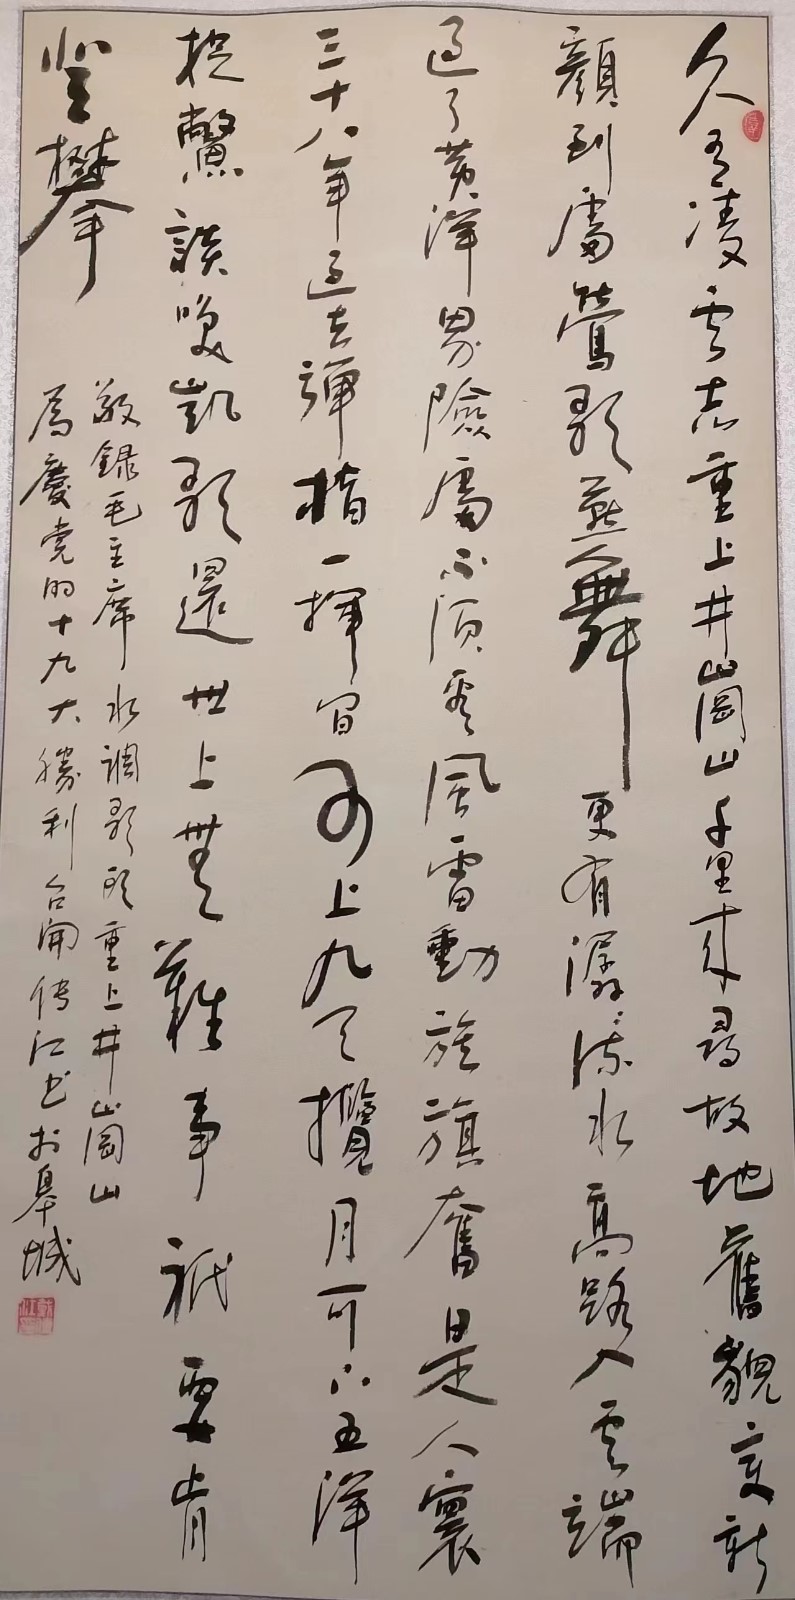 久有凌云志重上井崗山千里来尋故地舊貌变新
顏到處鶯歌燕舞更有潺潺流水高路入云端
過了黄洋界險處不須看風雷動旌旗奮是人寰
三十八年過去彈指一揮间可上九天攬月可下五洋
捉鱉談笑凱歌還世上無難事祇要肯
登攀
敬録毛主席水調歌頭重上井崗山
為慶党的十九大勝利召開传江书於皋城